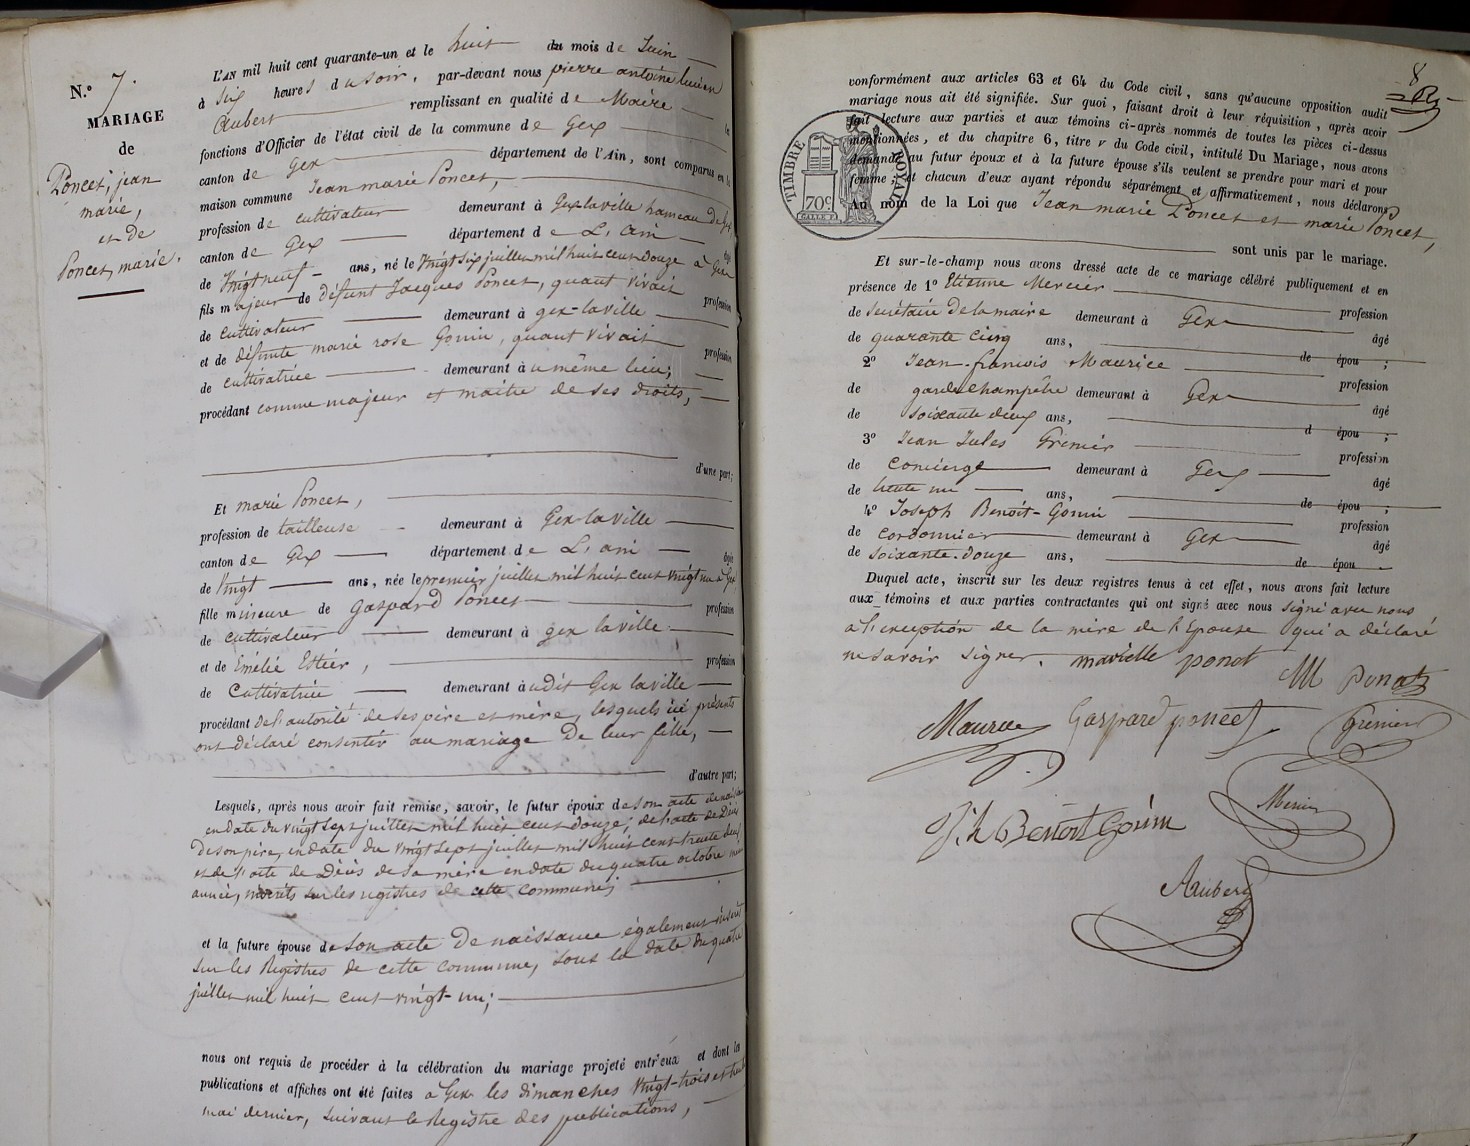 N.º 7.
MARIAGE
de
Poncet, jean
marie,
et de
Poncet, marie.
L'AN mil huit cent quarante-un et le huit du mois de Juin
à six heures du soir, par-devant nous pierre antoine lucien
Aubert remplissant en qualité de Maire les
fonctions d'Officier de l'état civil de la commune de Gex
canton de Gex département de l'Ain, sont comparus en la
maison commune Jean marie Poncet,
profession de cultivateur demeurant à Gex-la-ville hameau de Gex
canton de Gex département de L'ain âgé
de Vingt neuf ans, né le Vingt six juillet mil huit cent douze à Gex
fils majeur de défunt Jacques Poncet, quant vivait profession
de cultivateur demeurant à gex-la-ville
et de défunte marie rose Gonin, quant vivait profession
de cultivatrice demeurant à u même lieu;
procédant comme majeur et maitre de ses droits,
d'une part;
Et marie Poncet,
profession de tailleuse demeurant à Gex-la-ville
canton de Gex département de L'ain âgée
de Vingt ans, née le premier juillet mil huit cent vingt un à Gex
fille mineure de Gaspard Poncet profession
de cultivateur demeurant à gex la ville
et de Emélie Estier, profession
de Cultivatrice demeurant à udit Gex la ville
procédant de l'autorité de ses père et mère, lesquels ici présents
ont déclaré consentir au mariage de leur fille,
d'autre part;
Lesquels, après nous avoir fait remise, savoir, le futur époux de son acte de naissance
en date du vingt sept juillet mil huit cent douze, de l'acte de Décès
de son père, en date du vingt sept juillet mil huit cent trente deux
et de l'acte de Décès de sa mère en date du quatre octobre même
année, inscrits sur les registres de cette commune;
et la future épouse de son acte de naissance également inscrit
sur les Registres de cette commune, sous la date du quatre
juillet mil huit cent vingt-un;
nous ont requis de procéder à la célébration du mariage projeté entr'eux et dont les
publications et affiches ont été faites à Gex les dimanches vingt-trois et trente
mai dernier, suivant le Registre des publications,
8
conformément aux articles 63 et 64 du Code civil, sans qu'aucune opposition audit
mariage nous ait été signifiée. Sur quoi, faisant droit à leur réquisition, après avoir
fait lecture aux parties et aux témoins ci-après nommés de toutes les pièces ci-dessus
mentionnées, et du chapitre 6, titre v du Code civil, intitulé Du Mariage, nous avons
demandé au futur époux et à la future épouse s'ils veulent se prendre pour mari et pour
femme; et chacun d'eux ayant répondu séparément et affirmativement, nous déclarons
Au nom de la Loi que Jean marie Poncet et marie Poncet,
TIMBRE ROYAL
70 c.
sont unis par le mariage.
Et sur-le-champ nous avons dressé acte de ce mariage célébré publiquement et en
présence de 1º Etienne Mercier profession
de Secrétaire de la mairie demeurant à Gex âgé
de quarante cinq ans, de épou ;
2º Jean-francois Maurice profession
de garde champêtre demeurant à Gex âgé
de soixante deux ans, d épou ;
3º Jean Jules Grenier profession
de Concierge demeurant à Gex âgé
de trente un ans, de épou ;
4º Joseph Benoit-Gonin profession
de cordonnier demeurant à Gex âgé
de soixante-douze ans, de épou
Duquel acte, inscrit sur les deux registres tenus à cet effet, nous avons fait lecture
aux témoins et aux parties contractantes qui ont signé avec nous signé avec nous
a l'exception de la mère de l'Epouse qui a déclaré
ne savoir signer. mariette ponet JM Ponet
Maurice Gaspard poncet Grenier
Jh Benoit Gonin Mercier
Aubert